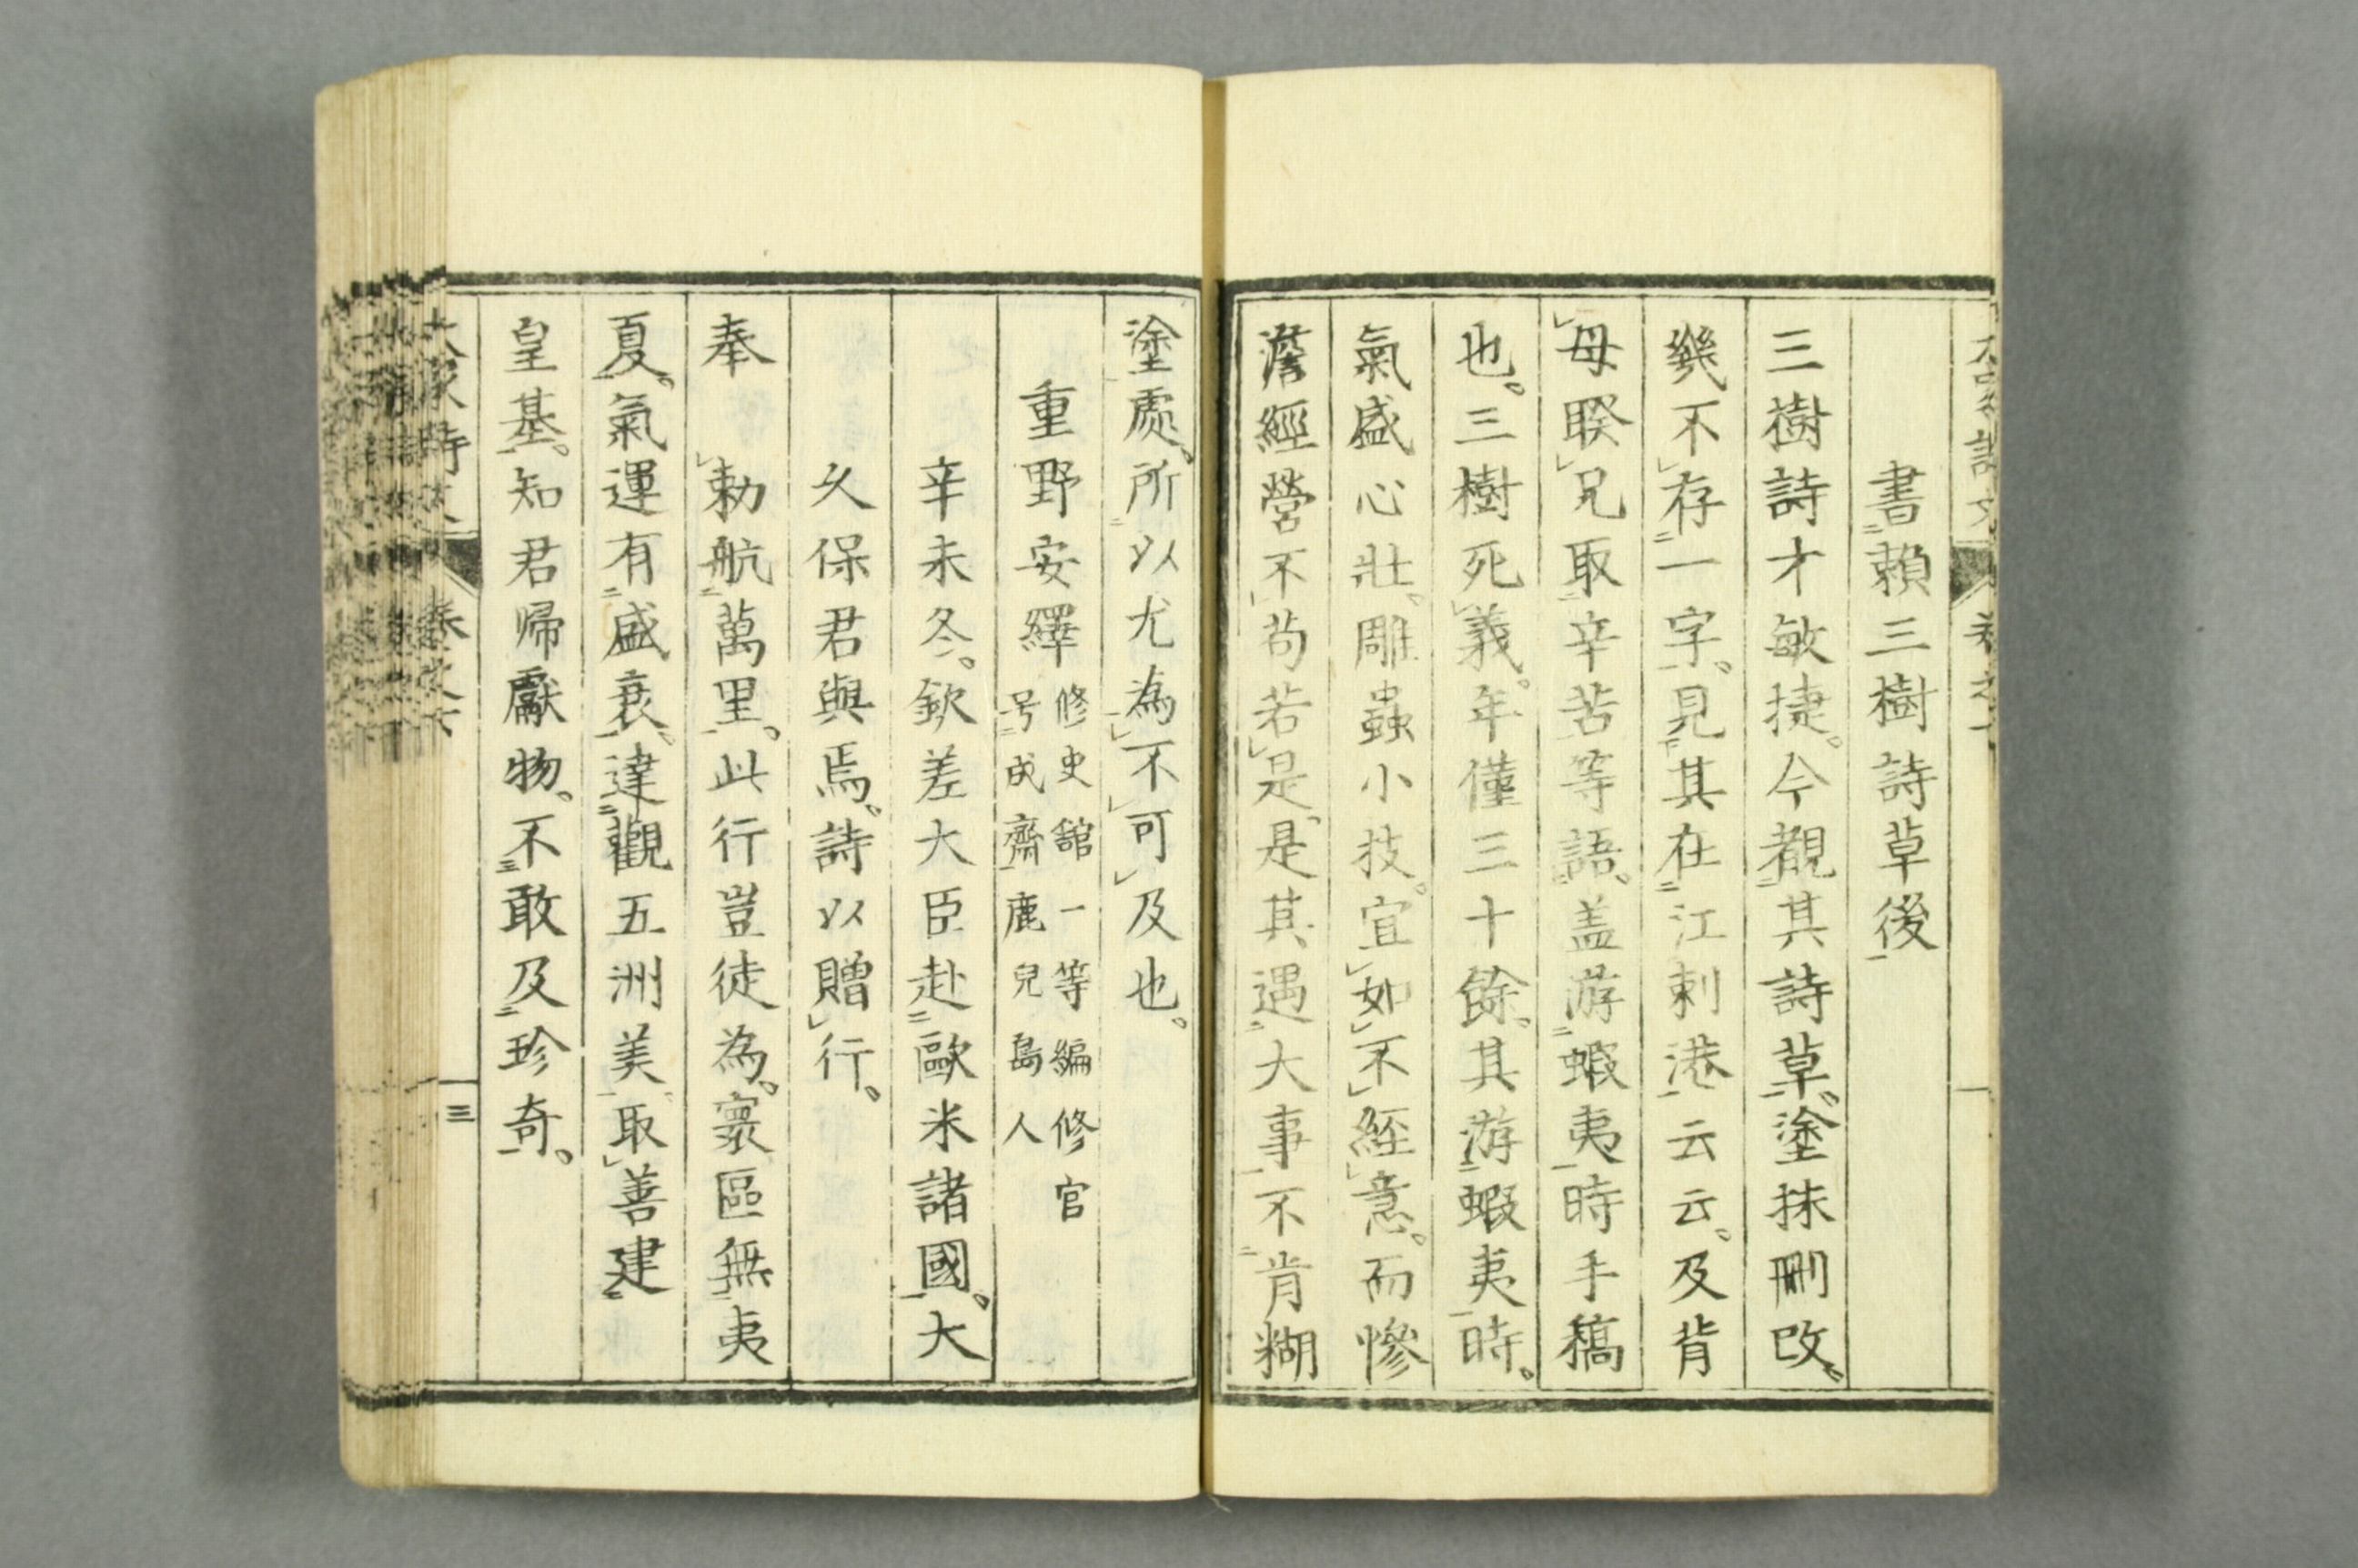 書賴三樹詩草後
三樹詩才敏捷。今觀其詩草。塗抹刪改。
幾不存一字。見其在江刺港云云。及背
母睽兄取辛苦等語。盖游蝦夷時手稿
也。三樹死義。年僅三十餘。其游蝦夷時。
氣盛心壯。雕蟲小技。宜如不經意。而慘
澹經營不苟若是。是其遇大事不肯糊
塗處。所以尤為不可及也。
重野安繹 修史舘一等編修官
号成齋鹿兒島人
辛未冬。欽差大臣赴歐米諸國。大
久保君與焉。詩以贈行。
奉 勅航萬里。此行豈徒為。寰區無夷
夏。氣運有盛衰。達觀五洲美。取善建
皇基。知君帰獻物。不敢及珍奇。
三